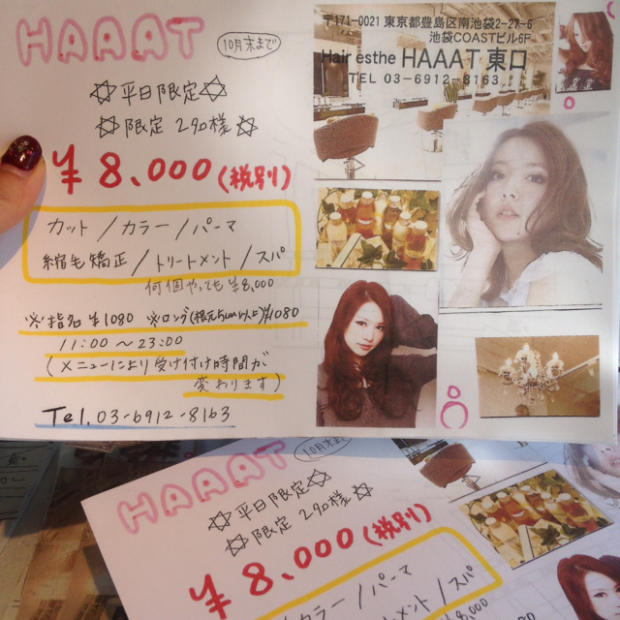 HAAAT
10月末まで
平日限定
限定 290様
¥8,000(税別)
カット/カラー/パーマ
縮毛矯正/トリートメント/スパ
何個やっても¥8,000
※指名¥1080 ※ロング(根元5cm以上)¥1080
11:00〜23:00
(メニューにより受け付け時間が
変わります)
Tel. 03-6912-8163
〒171-0021 東京都豊島区南池袋2-27-6
池袋COASTビル6F
Hair esthe HAAAT 東口
TEL 03-6912-8163
HAAAT
10月末まで
平日限定
限定 290様
¥8,000(税別)
カラー/パーマ
トメント/スパ